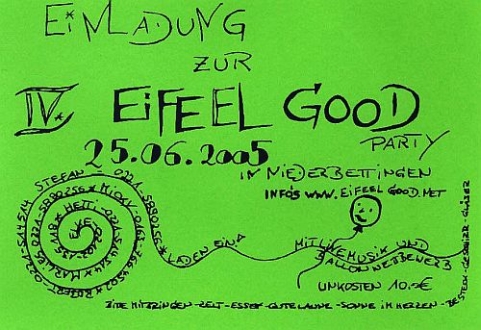 EiNLADUNG
ZUR
IV. EiFEEL GOOD
PARTY
25.06.2005
IN NiEDERBETTINGEN
INFO'S WWW.EiFEEL GOOD.NET
STEFAN - 0221-5890256 * MICKY
LADEN EIN
MIT LIVEMUSIK UND
BALLONWETTBEWERB
UNKOSTEN 10.-€
BITTE MITBRINGEN - ZELT - ESSEN - GUTE LAUNE - SONNE IM HERZEN - BESTECK - GESCHIRR - GLÄSER